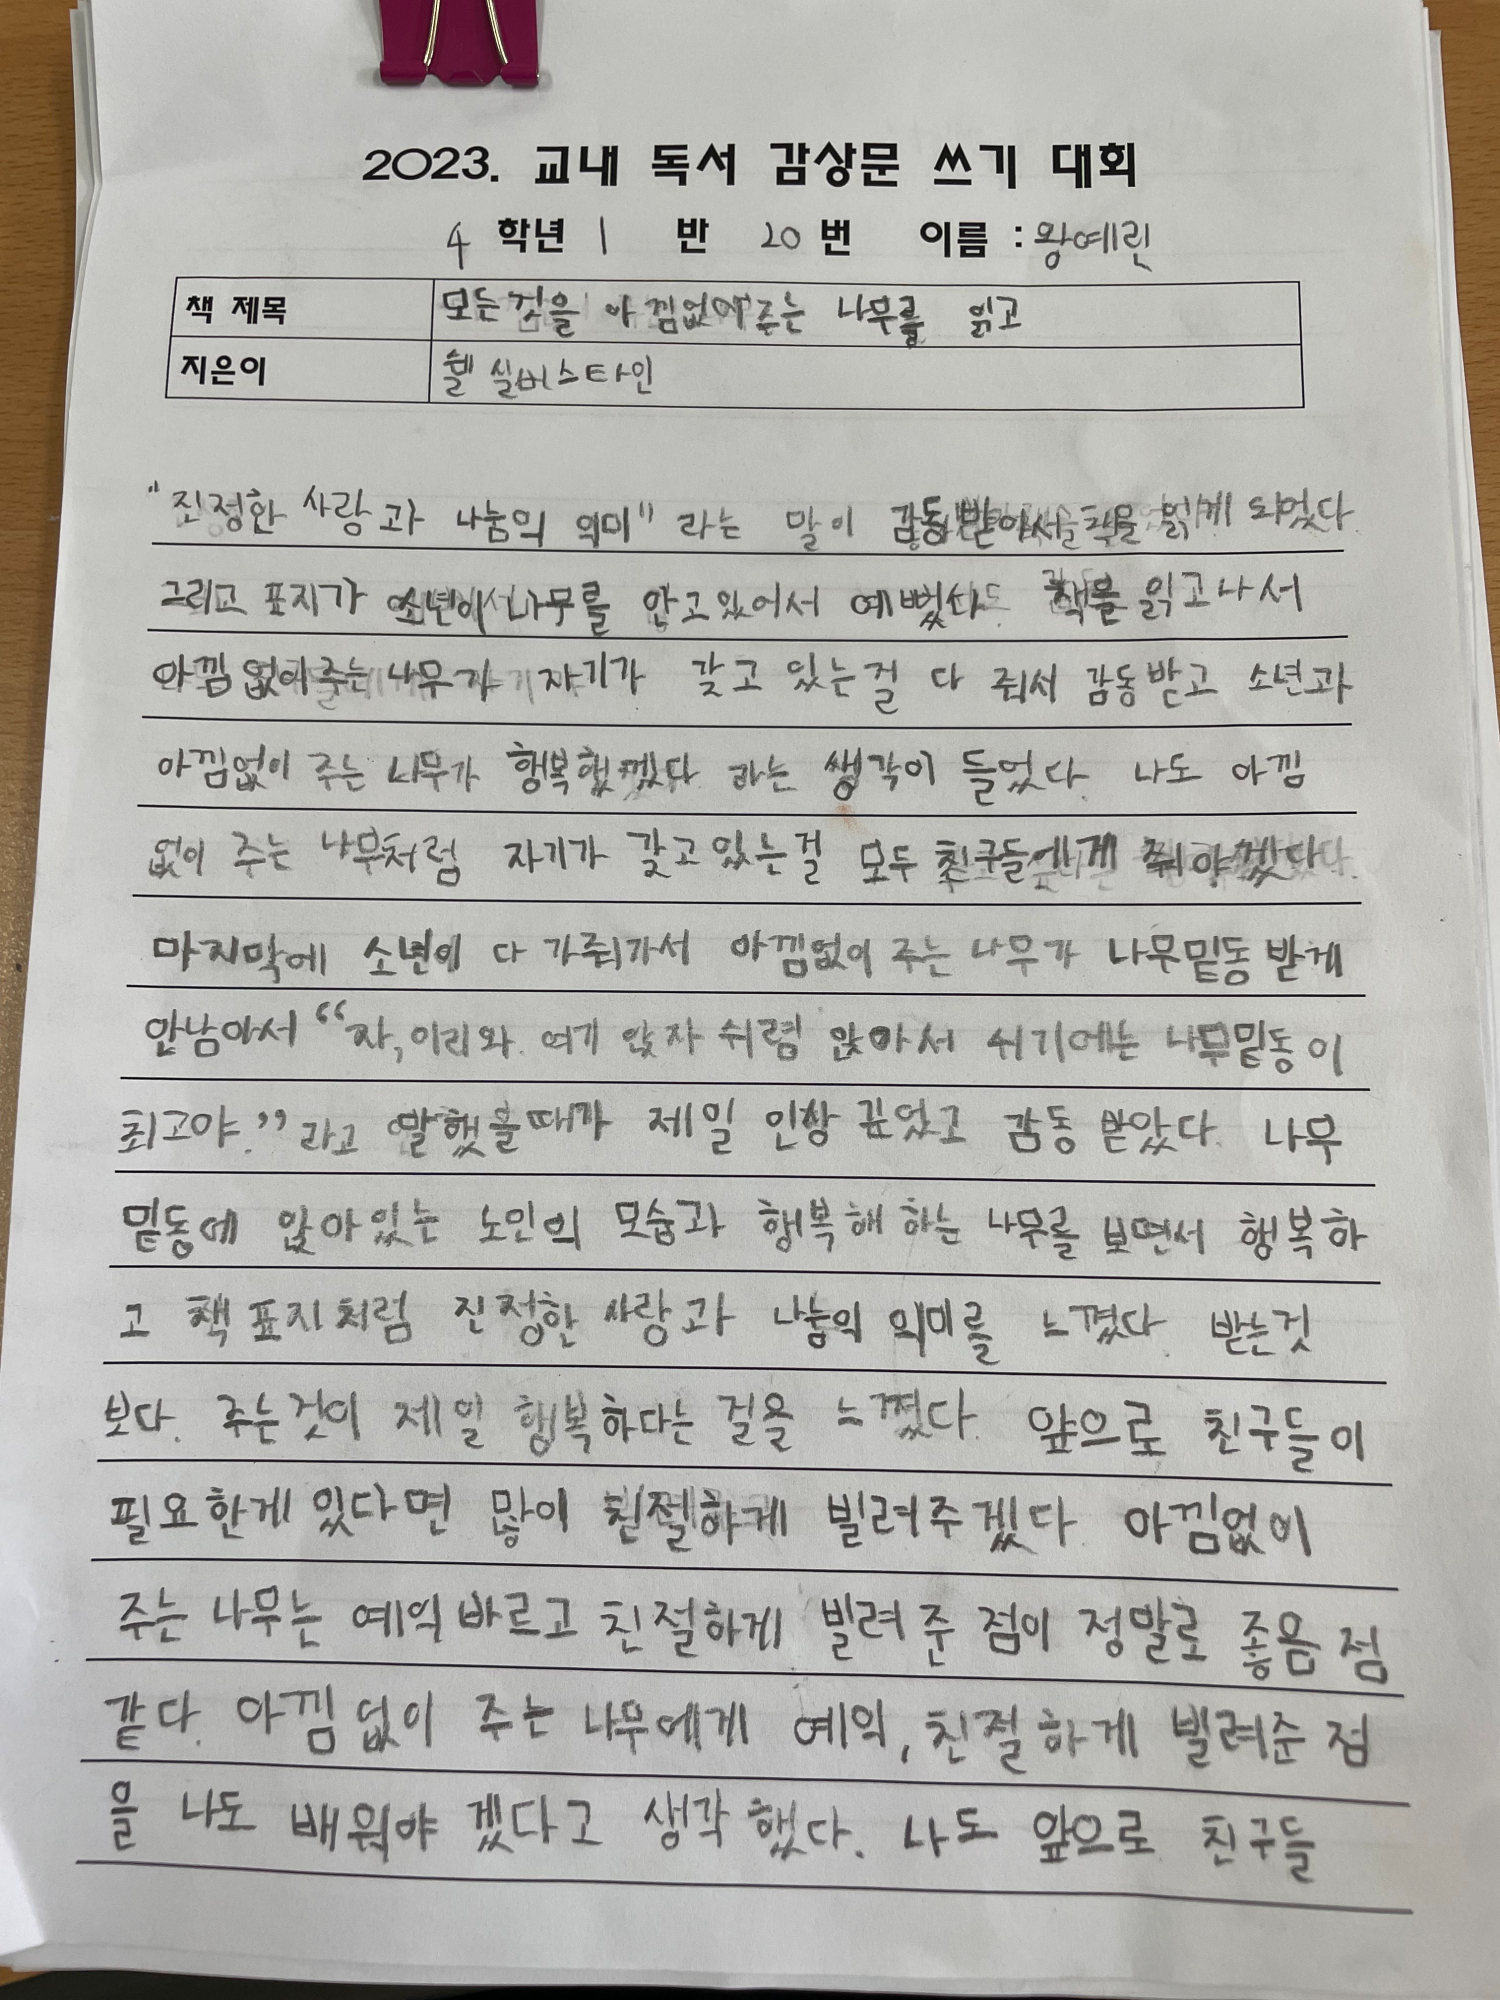 2023. 교내 독서 감상문 쓰기 대회
4 학년 1 반 20 번 이름 : 왕예린
책 제목 모든것을 아낌없이주는 나무를 읽고
지은이 쉘 실버스타인
"진정한 사랑과 나눔의 의미" 라는 말이 감동받아서 책을 읽게 되었다.
그리고 표지가 소년이 나무를 안고있어서 예뻤다. 책을 읽고나서
아낌없이주는 나무가 자기가 갖고 있는걸 다 줘서 감동받고 소년과
아낌없이 주는 나무가 행복했겠다 라는 생각이 들었다. 나도 아낌
없이 주는 나무처럼 자기가 갖고있는걸 모두 친구들에게 줘야겠다.
마지막에 소년이 다 가줘가서 아낌없이 주는 나무가 나무밑동 받게
안남아서 “자, 이리와. 여기 앉자 쉬렴 앉아서 쉬기에는 나무밑동이
최고야.” 라고 말했을때가 제일 인상 깊었고 감동 받았다. 나무
밑동에 앉아있는 노인의 모습과 행복해 하는 나무를 보면서 행복하
고 책 표지처럼 진정한 사랑과 나눔의 의미를 느꼈다. 받는것
보다. 주는것이 제일 행복하다는 걸을 느꼈다. 앞으로 친구들이
필요한게 있다면 많이 친절하게 빌려주겠다. 아낌없이
주는 나무는 예의 바르고 친절하게 빌려 준 점이 정말로 좋음 점
같다. 아낌없이 주는 나무에게 예의, 친절하게 빌려준 점
을 나도 배워야 겠다고 생각했다. 나도 앞으로 친구들